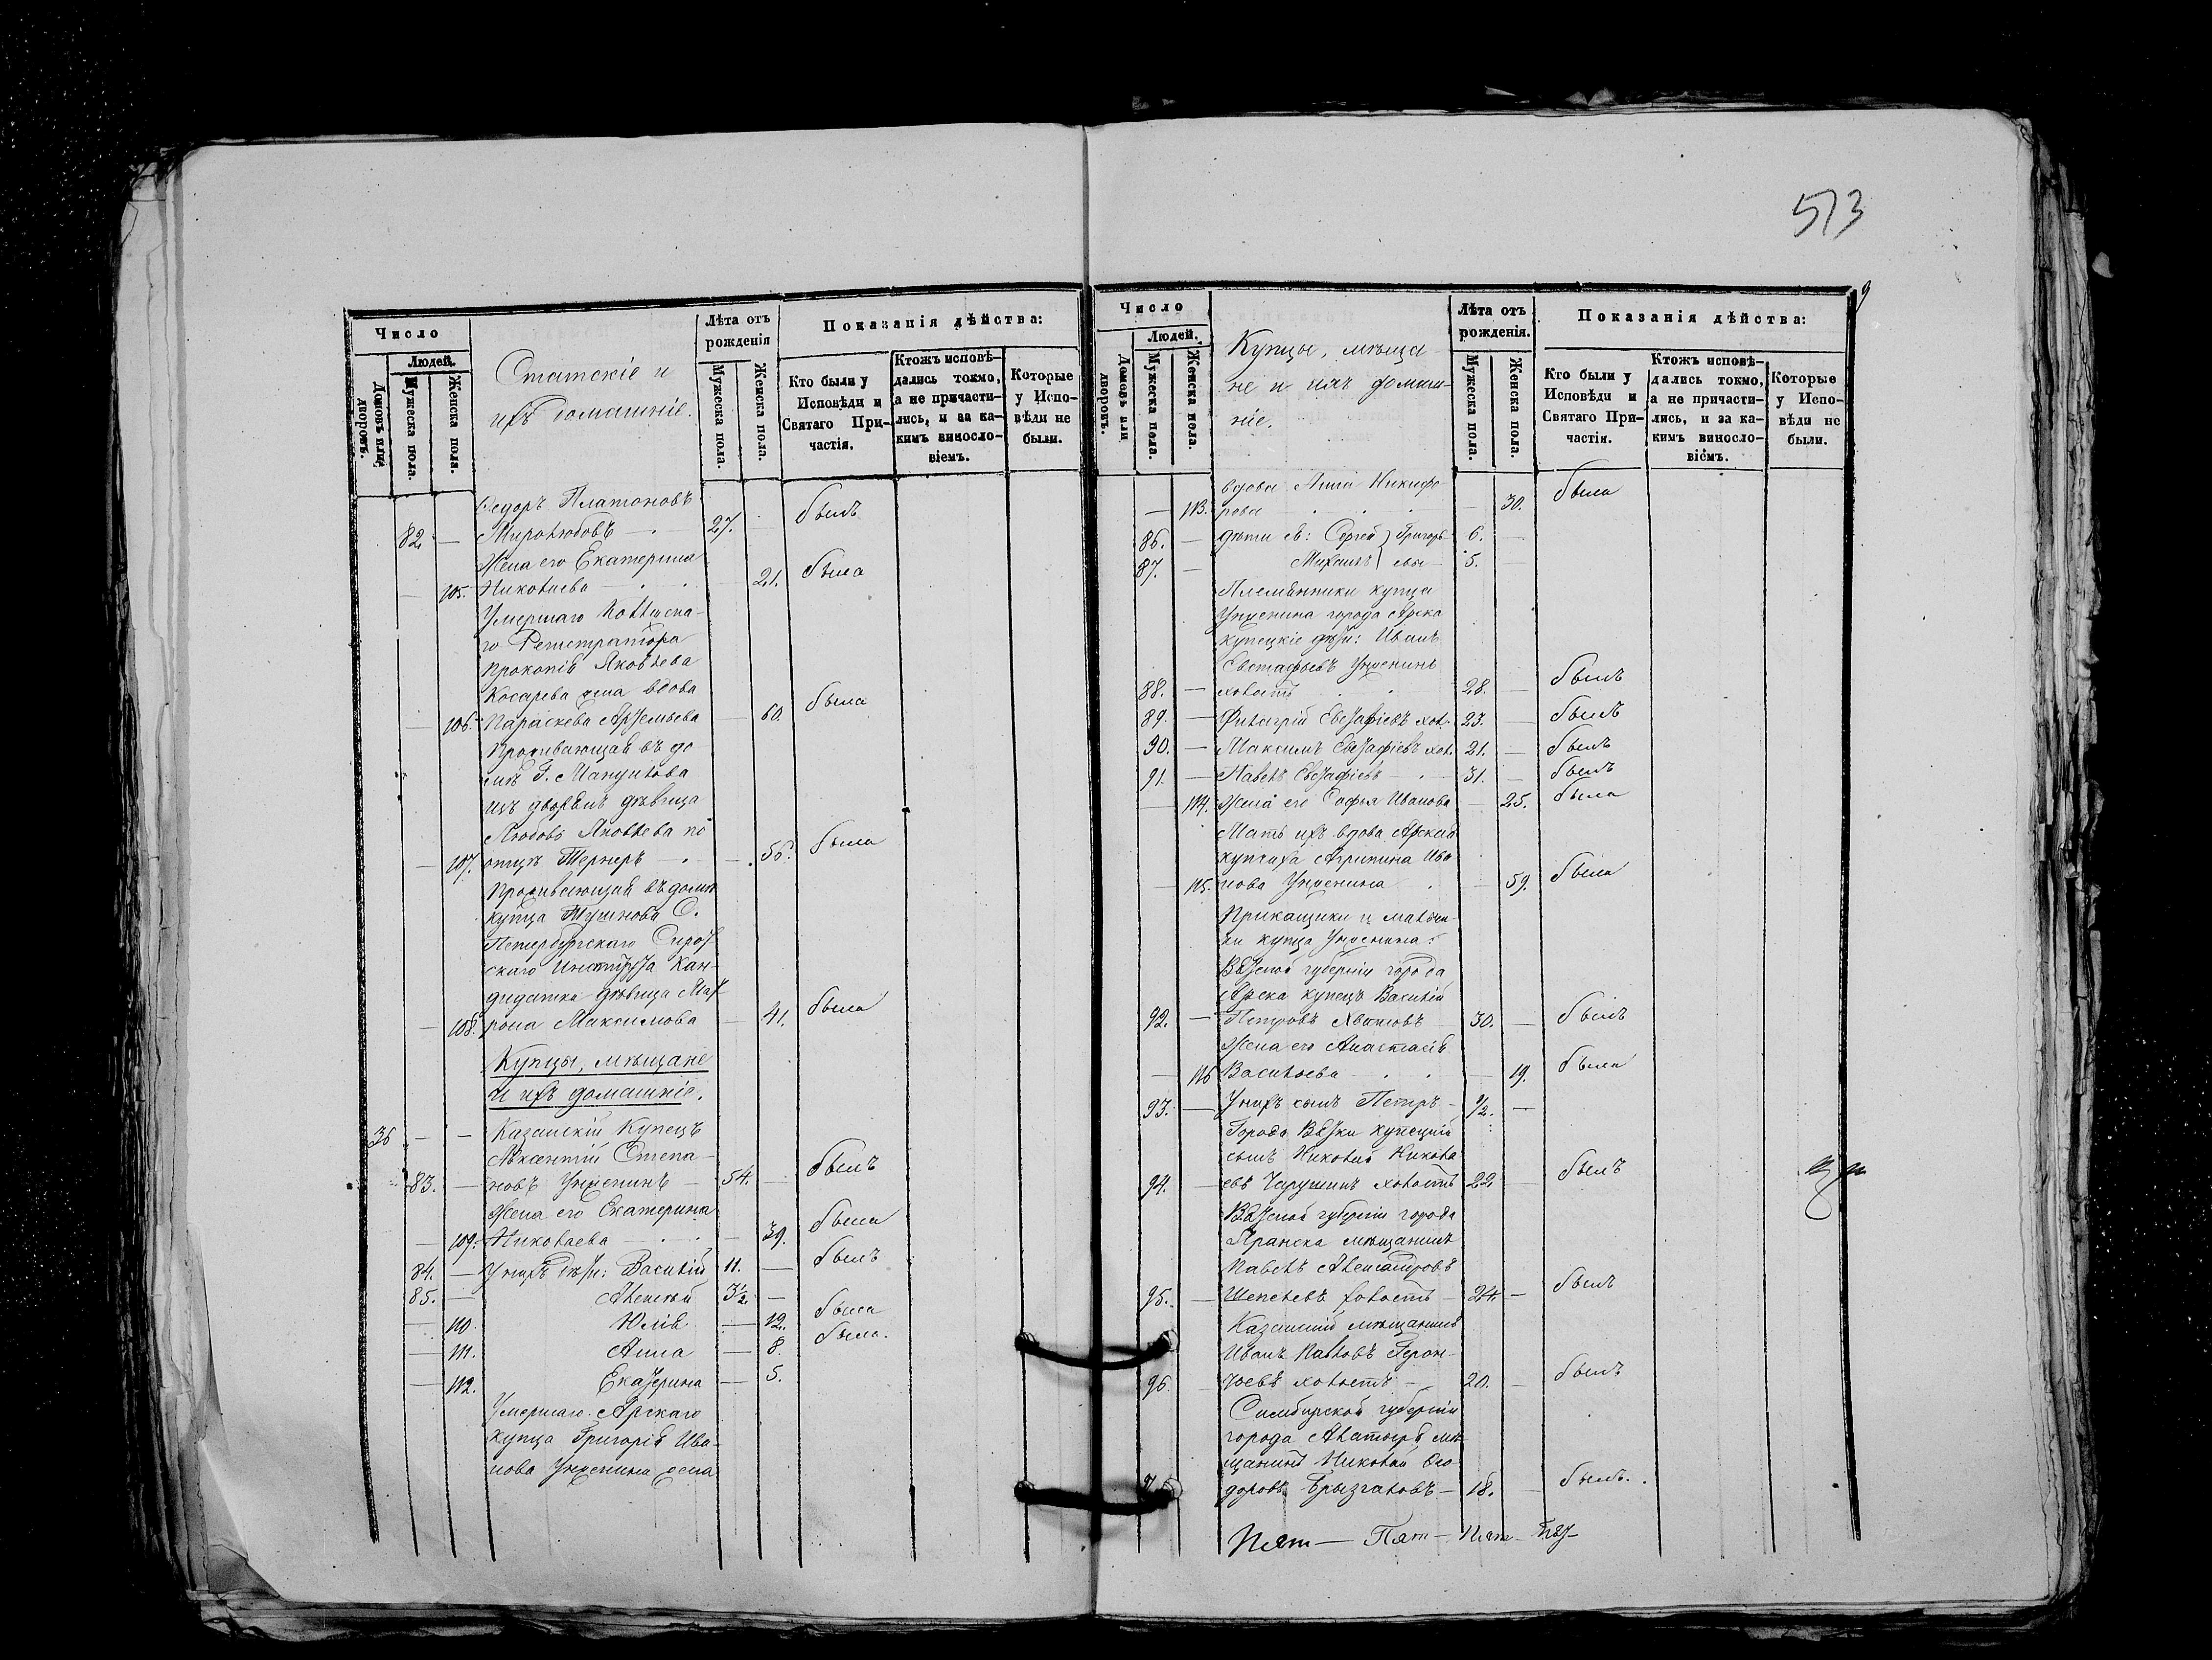 573
9
Число
Людей.
Домовъ или дворовъ.
Мужеска пола.
Женска пола.
Статскіе и
ихъ домашніе.
Лѣта отъ рожденія
Мужеска пола.
Женска пола.
Показанія дѣйства:
Кто были у Исповѣди и Святаго Причастія.
Ктожъ исповѣдались токмо, а не причастились, и за какимъ винословіемъ.
Которые у Исповѣди не были.
Ѳедоръ Платоновъ
82. — Миролюбовъ — 27. — былъ
Жена его Екатерина
— 105. Николаева — 21. была
Умершаго Коллежска-
го Регистратора
Прокопія Яковлева
Косарева жена вдова
— 106. Параскева Артемьева — 60. была
Проживающая въ до
мѣ Г.
изъ дворянъ дѣвица
Любовь Яковлева по
— 107. отцѣ Тернеръ — 56. была
Проживающая въ домѣ
купца Тушнова С.
Петербургскаго Сирот
скаго Института Кан-
дидатка дѣвица Мат
— 108. рона Максимова — 41. была
Купцы, мѣщане
и ихъ домашніе.
36 — — Казанскій Купецъ
Авксентій Степа-
83. — новъ Унженинъ — 54. — былъ
Жена его Екатерина
— 109. Николаева — 39. была
84. — У нихъ дѣти: Василій 11. — былъ
85. — Алексѣй 3½. —
— 110. Юлія — 12. была
— 111. Анна — 8. была.
— 112. Екатерина — 5.
Умершаго Арскаго
купца Григорія Ива-
нова Унженина жена
Число
Людей.
Домовъ или дворовъ.
Мужеска пола.
Женска пола.
Купцы, мѣща-
не и ихъ домаш-
ніе.
Лѣта отъ рожденія.
Мужеска пола.
Женска пола.
Показанія дѣйства:
Кто были у Исповѣди и Святаго Причастія.
Ктожъ исповѣдались токмо, а не причастились, и за какимъ винословіемъ.
Которые у Исповѣди не были.
вдова Анна Никифо
— 113. рова — 30. была
86. — дѣти ея: Сергѣй } Григорь- 6. —
87. — Михаилъ } евы — 5. —
Племянники купца
Унженина города Арска
купецкіе дѣти: Иванъ
Евстафьевъ Унженинъ
88. — холостъ 28. — былъ
89. — Филагрій Евстафіевъ хол. 23. — былъ
90. — Максимъ Евстафіевъ хол. 21. — былъ
91. — Павелъ Евстафіевъ — 31. — былъ
— 114. Жена его Софья Иванова — 25. была
Мать ихъ вдова Арская
купчиха Агрипина Ива
— 115. нова Унженина — 59. была
Прикащики и мальчи-
ки купца Унженина:
Вятской губерніи города
Арска купецъ Василій
92. — Петровъ 30. — былъ
Жена его Анастасія
— 116 Васильева — 19. была
93. — У нихъ сынъ Петръ — ½. —
Города Вятки купецкій
сынъ Николай Никола
94. — евъ Чарушинъ холостъ 22 былъ
Вятской губерніи города
Яранска мѣщанинъ
Павелъ Александровъ
95. — Шепелевъ холостъ — 24. — былъ
Казанскій мѣщанинъ
Иванъ Павловъ Герон-
96. тьевъ холостъ — 20. — былъ
Симбирской губерніи
города Алатыря мѣ
щанинъ Николай Ѳео
доровъ Брызгаловъ — 18. — былъ.